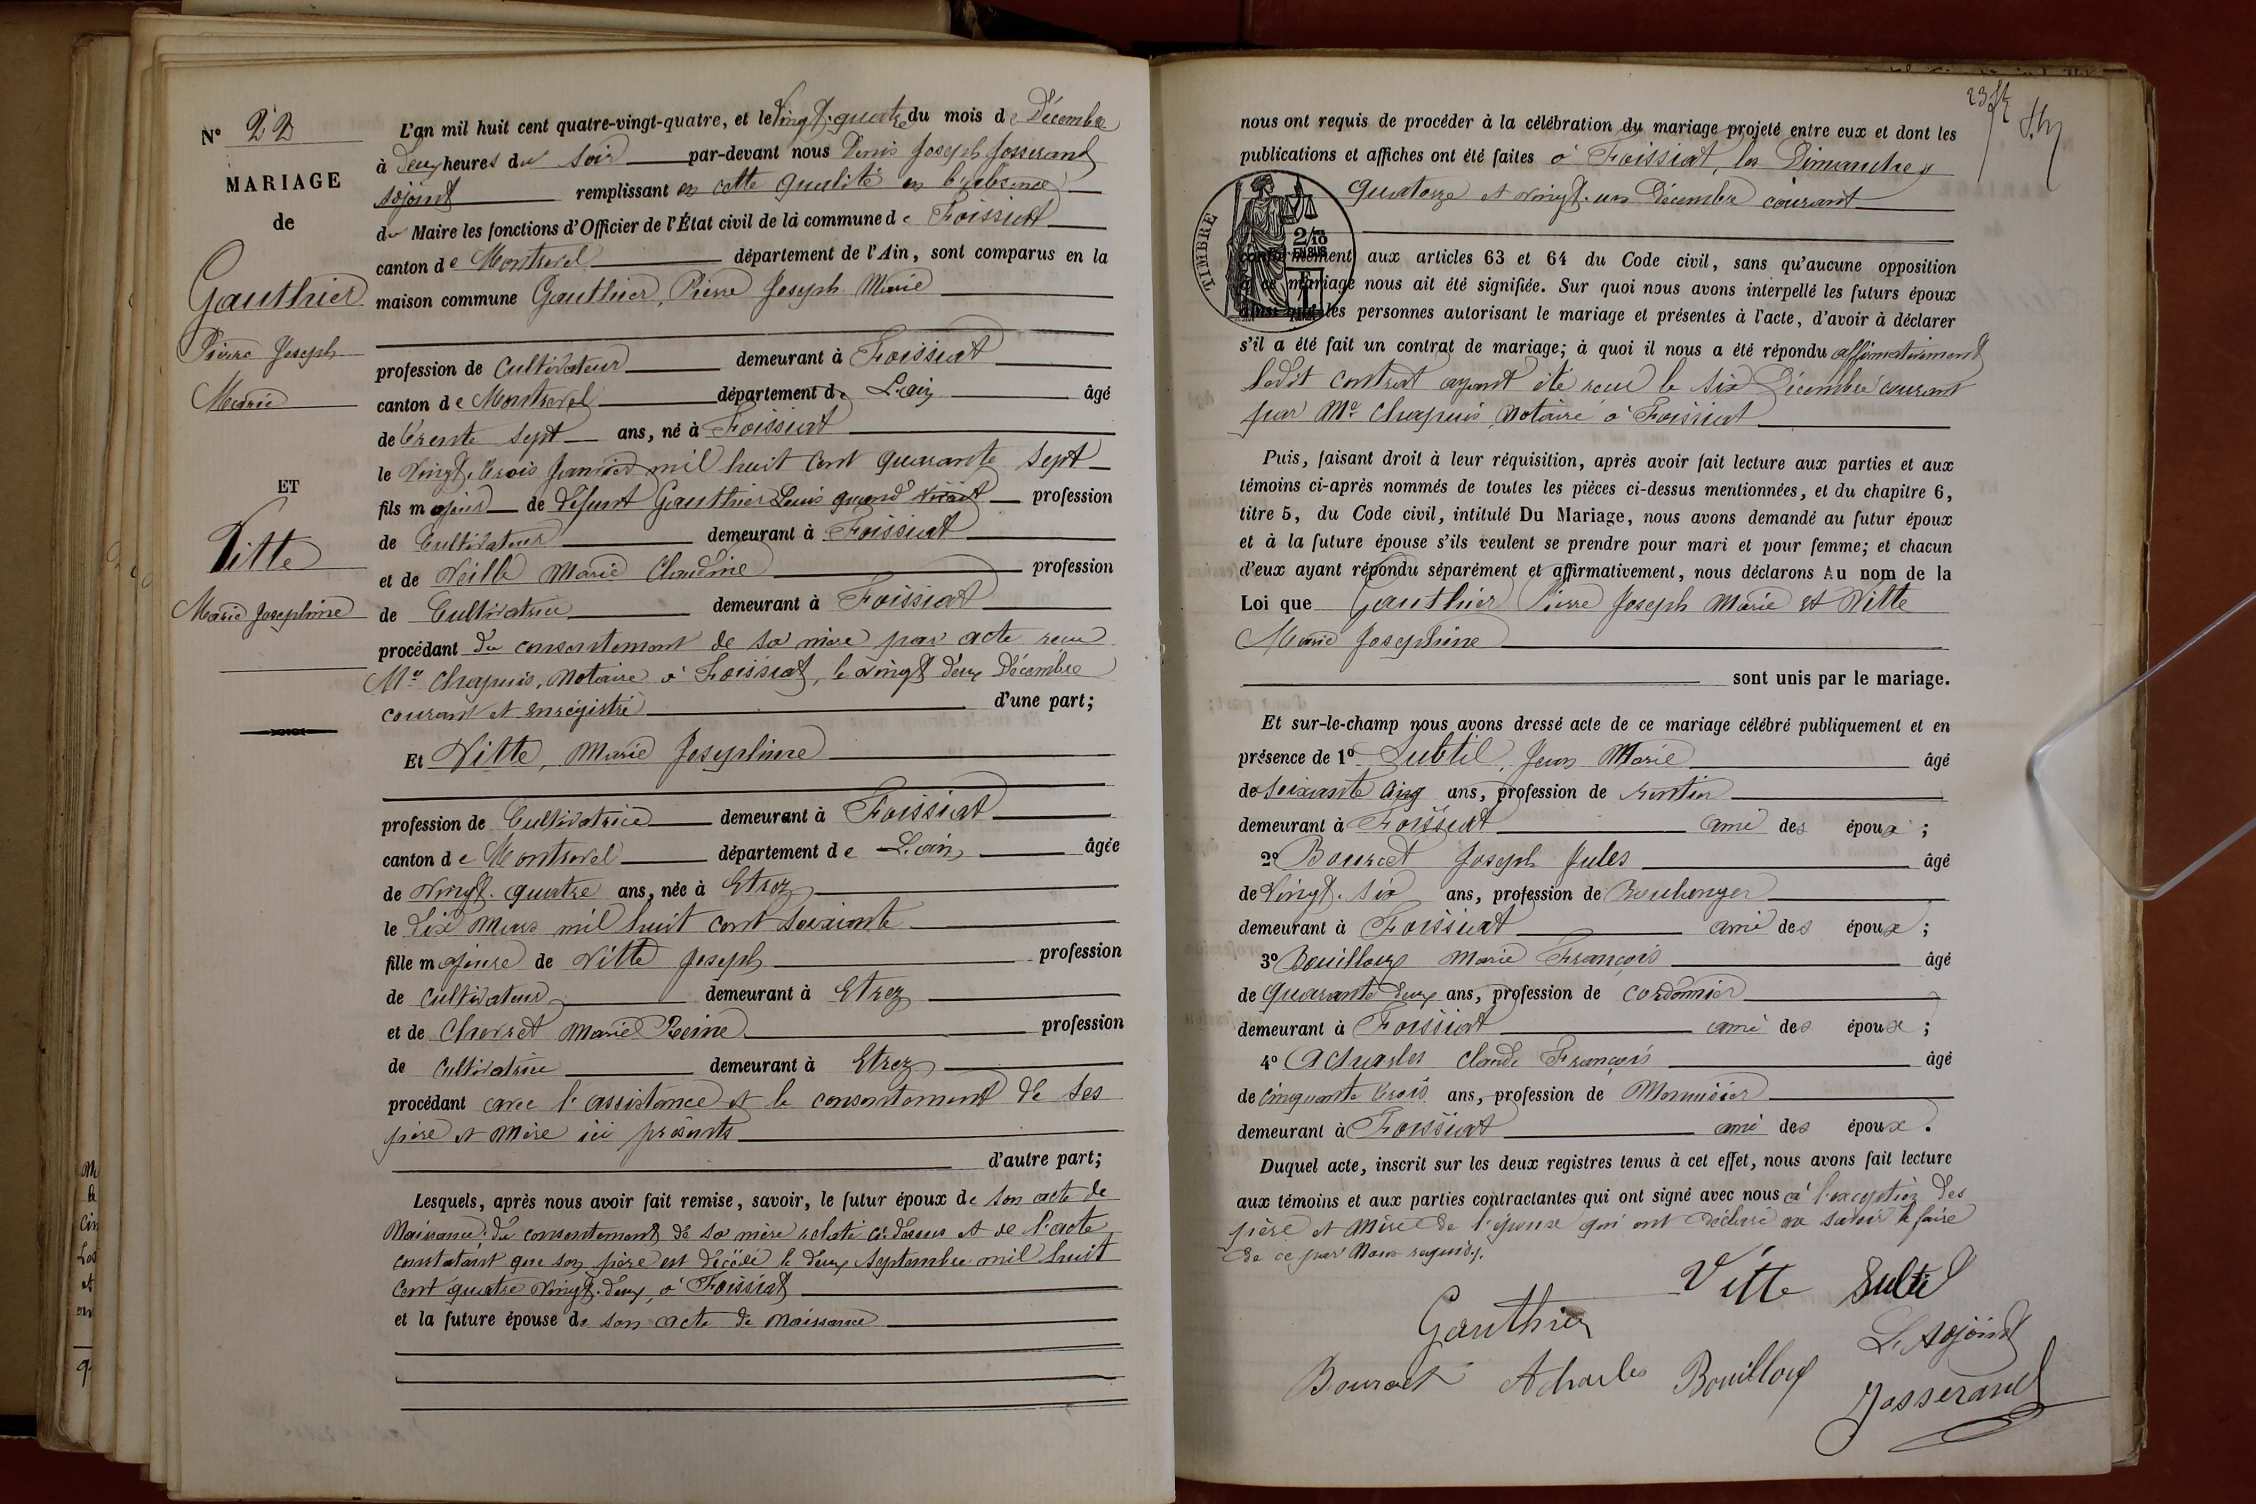 N° 22
MARIAGE
de
Gauthier
Pierre Joseph
Marie
ET
Vitte
Marie Joséphine
L'an mil huit cent quatre-vingt-quatre, et le Vingt-quatre du mois de Décembre
à deux heures du soir par-devant nous Denis Joseph Josserand
adjoint remplissant en cette qualité en l'absence
du Maire les fonctions d'Officier de l'État civil de la commune de Foissiat
canton de Montrevel département de l'Ain, sont comparus en la
maison commune Gauthier, Pierre Joseph Marie
profession de Cultivateur demeurant à Foissiat
canton de Montrevel département de L'ain âgé
de trente sept ans, né à Foissiat
le vingt-trois Janvier mil huit cent quarante sept
fils majeur de défunt Gauthier Louis quand vivait profession
de Cultivateur demeurant à Foissiat
et de Veille Marie Claudine profession
de Cultivatrice demeurant à Foissiat
procédant du consentement de sa mère par acte reçu
Me Chapuis, notaire à Foissiat, le vingt deux Décembre
courant et enregistré d'une part;
Et Vitte, Marie Joséphine
profession de Cultivatrice demeurant à Foissiat
canton de Montrevel département de L'ain âgée
de vingt-quatre ans, née à Etrez
le dix Mars mil huit cent soixante
fille majeure de Vitte Joseph profession
de cultivateur demeurant à Etrez
et de Chevret Marie Reine profession
de cultivatrice demeurant à Etrez
procédant avec l'assistance et le consentement de ses
père et mère ici présents
d'autre part;
Lesquels, après nous avoir fait remise, savoir, le futur époux de son acte de
Naissance, du consentement de sa mère relaté ci-dessus et de l'acte
constatant que son père est décédé le deux septembre mil huit
cent quatre vingt-deux, à Foissiat
et la future épouse de son acte de naissance
23
nous ont requis de procéder à la célébration du mariage projeté entre eux et dont les
publications et affiches ont été faites à Foissiat, les Dimanches
quatorze et vingt-un Décembre courant
TIMBRE
2/10
EN SUS
conformément aux articles 63 et 64 du Code civil, sans qu'aucune opposition
à ce mariage nous ait été signifiée. Sur quoi nous avons interpellé les futurs époux
ainsi que les personnes autorisant le mariage et présentes à l'acte, d'avoir à déclarer
s'il a été fait un contrat de mariage; à quoi il nous a été répondu affirmativement
ledit contrat ayant été reçu le six Décembre courant
par Me Chapuis, notaire à Foissiat
Puis, faisant droit à leur réquisition, après avoir fait lecture aux parties et aux
témoins ci-après nommés de toutes les pièces ci-dessus mentionnées, et du chapitre 6,
titre 5, du Code civil, intitulé Du Mariage, nous avons demandé au futur époux
et à la future épouse s'ils veulent se prendre pour mari et pour femme; et chacun
d'eux ayant répondu séparément et affirmativement, nous déclarons Au nom de la
Loi que Gauthier Pierre Joseph Marie et Vitte
Marie Joséphine
sont unis par le mariage.
Et sur-le-champ nous avons dressé acte de ce mariage célébré publiquement et en
présence de 1° Subtil, Jean Marie âgé
de soixante cinq ans, profession de rentier
demeurant à Foissiat ami des époux;
2° Bourcet Joseph Jules âgé
de vingt-six ans, profession de Boulanger
demeurant à Foissiat ami des époux;
3° Bouilloux Marie François âgé
de quarante deux ans, profession de cordonnier
demeurant à Foissiat ami des époux;
4° Acharles Claude François âgé
de cinquante trois ans, profession de Menuisier
demeurant à Foissiat ami des époux.
Duquel acte, inscrit sur les deux registres tenus à cet effet, nous avons fait lecture
aux témoins et aux parties contractantes qui ont signé avec nous à l'exception des
père et mère de l'épouse qui ont déclaré ne savoir le faire
de ce par nous requis.
Vitte Subtil
Gauthier
L'adjoint
Bourcet Acharles Bouilloux
Josserand